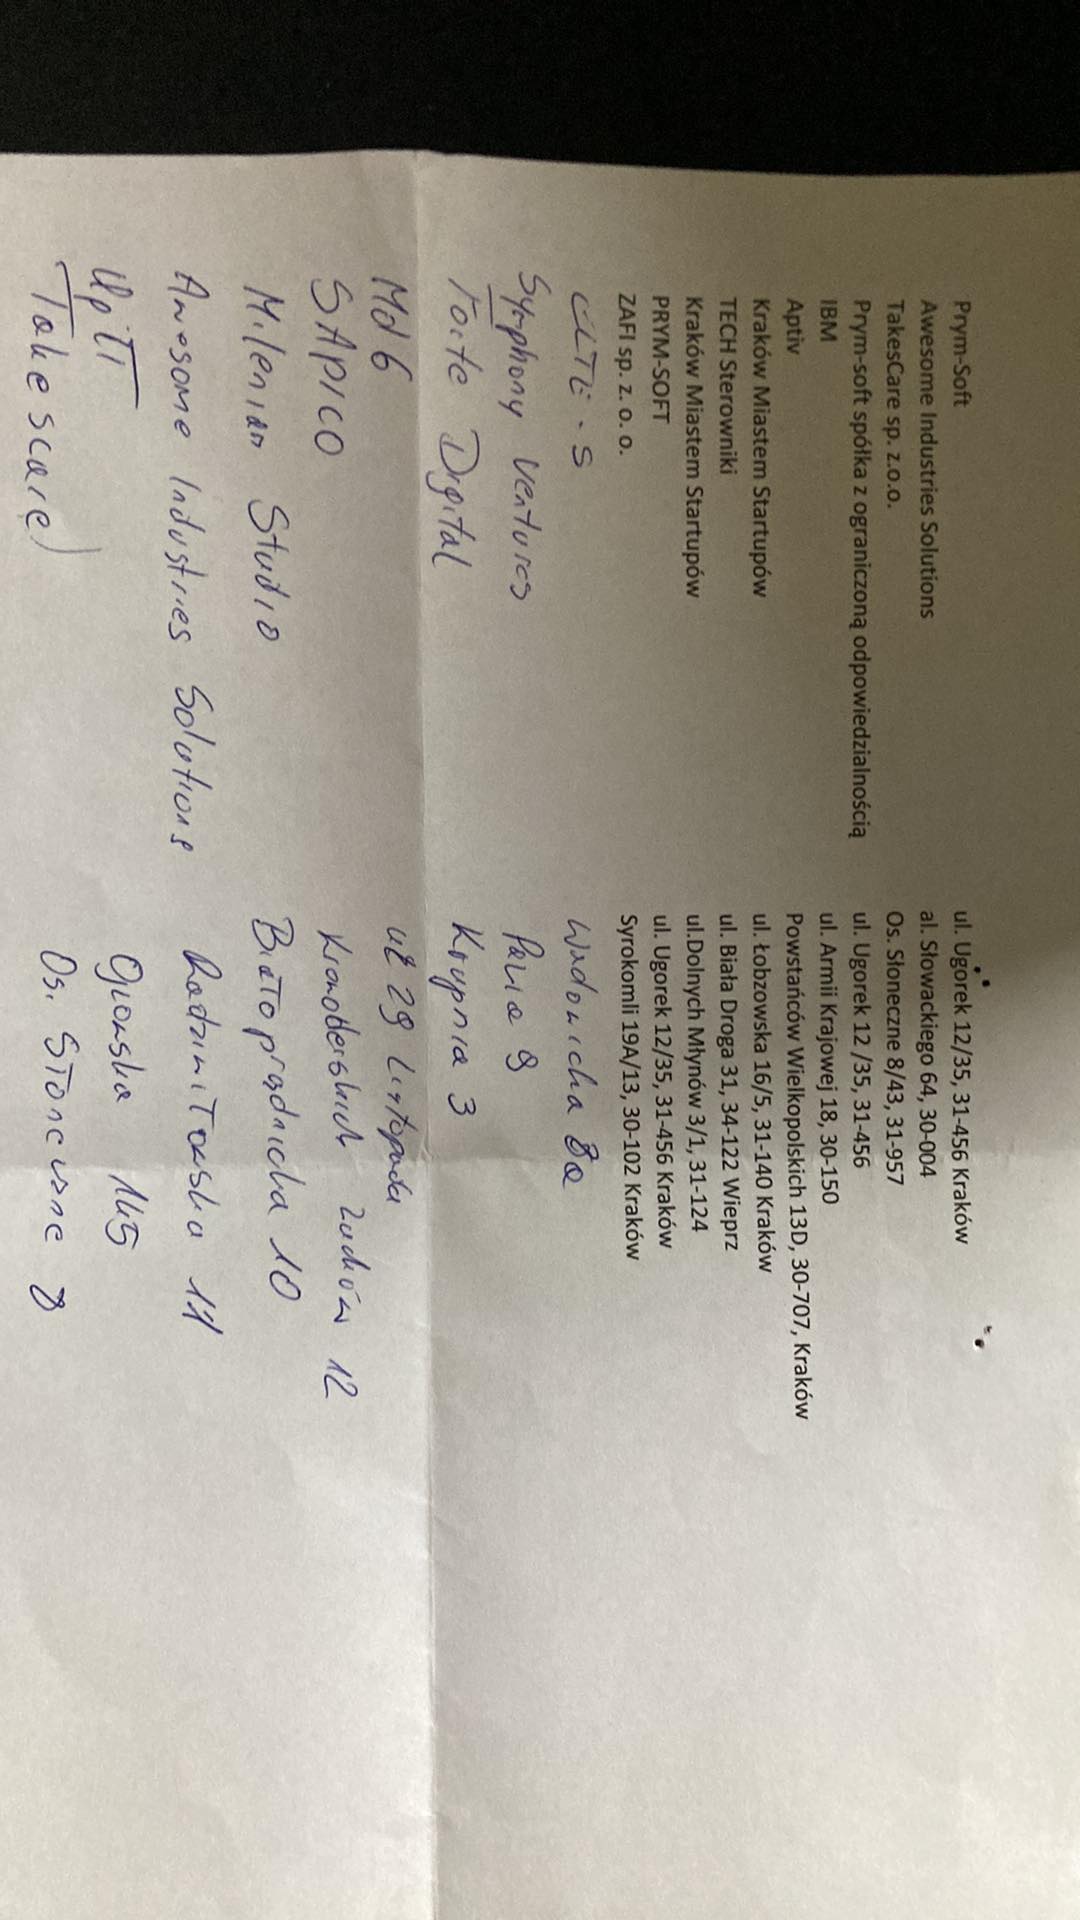 Prym-Soft ul. Ugorek 12/35, 31-456 Kraków
Awesome Industries Solutions al. Słowackiego 64, 30-004
TakesCare sp. z.o.o. Os. Słoneczne 8/43, 31-957
Prym-soft spółka z ograniczoną odpowiedzialnością ul. Ugorek 12 /35, 31-456
IBM ul. Armii Krajowej 18, 30-150
Aptiv Powstańców Wielkopolskich 13D, 30-707, Kraków
Kraków Miastem Startupów ul. Łobzowska 16/5, 31-140 Kraków
TECH Sterowniki ul. Biała Droga 31, 34-122 Wieprz
Kraków Miastem Startupów ul.Dolnych Młynów 3/1, 31-124
PRYM-SOFT ul. Ugorek 12/35, 31-456 Kraków
ZAFI sp. z. o. o. Syrokomli 19A/13, 30-102 Kraków
ELTE-S Wadowicka 8a
Symphony Ventures Pawia 9
Forte Digital Krupnia 3
Md 6 ul 29 Listopada
SAPICO 12
Milenian Studio Białoprądnicka 10
Awesome Industries Solutions Radziwiłowska 11
Up IT 145
Takescare Os. Słoneczne 8